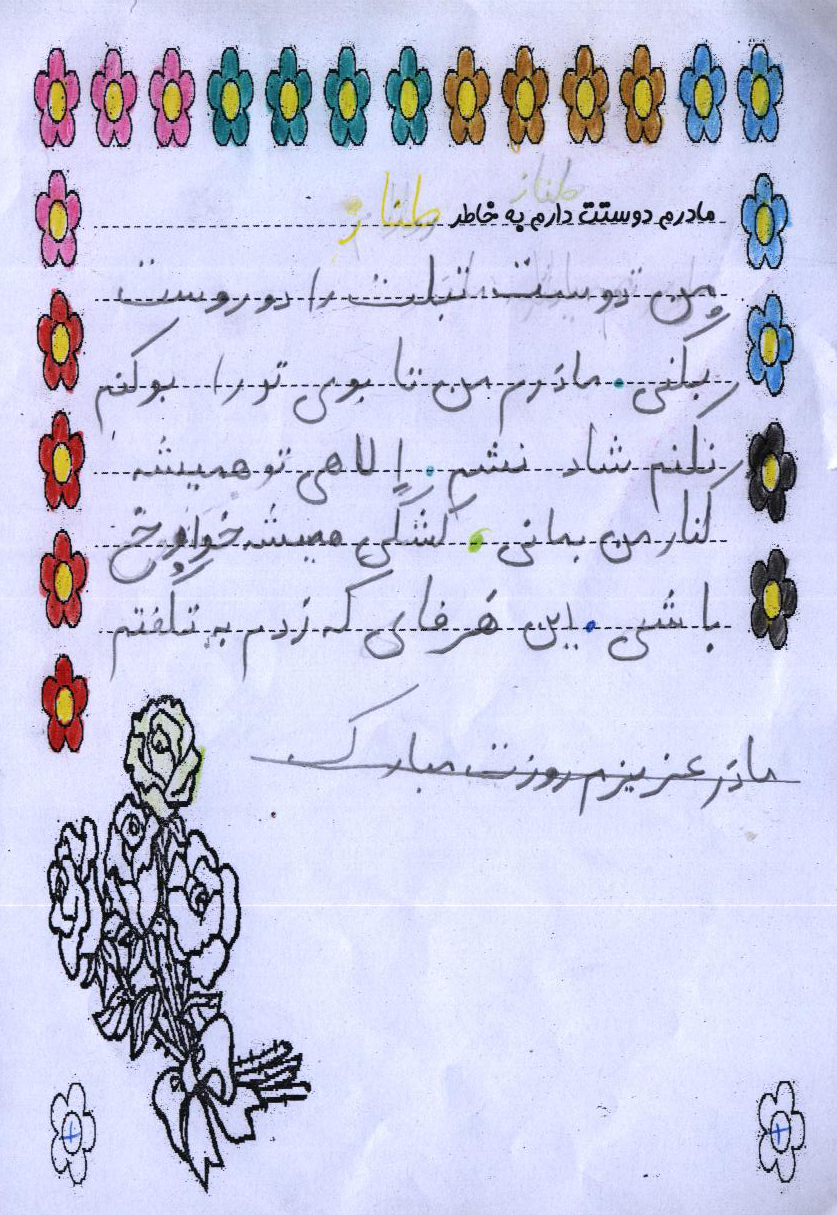 طناز
مادرم دوستت دارم به خاطر طناز
من توسیت تبلت را دو روست
بکنی. مادرم من تا بوی تو را بوکنم
نکنم شاد نشم. الاهی تو همیشه
کنار من بمانی. کشکی همیشه
باشی. این هرفای که زدم به تگفتم
مادر عزیزم روزت مبارک